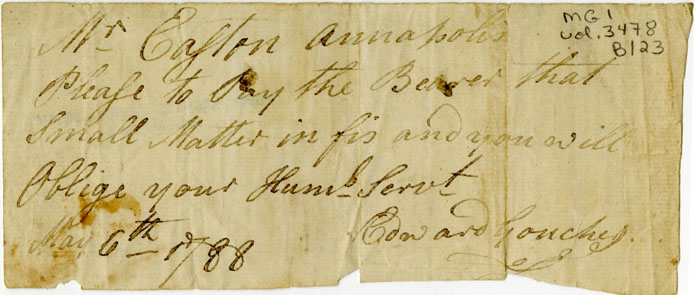 Mr Easton Annapolis
Please to Pay the Bearer that
Small Matter in fis and you will
Oblige your Humb Servt
May 6th 1788
Edward Gouche
MG1
vol. 3478
B123